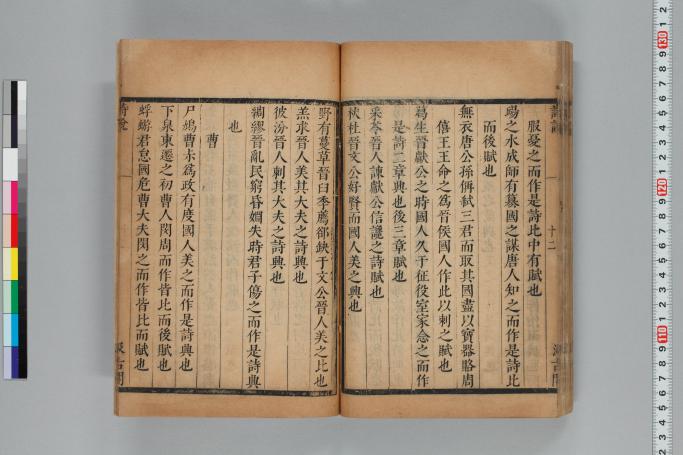 詩說
十二
汲古閣
服憂之而作是詩比中有賦也
晹之水成師有篡國之謀唐人知之而作是詩比
而後賦也
無衣唐公孫偁弑三君而取其國盡以寶器賂周
僖王王命之爲晉侯國人作此以刺之賦也
葛生晉獻公之時國人久于征役室家念之而作
是詩二章典也後三章賦也
采苓晉人諫獻公信讒之詩賦也
杕杜晉文公好賢而國人美之興也
野有蔓草晉臼季薦郤缺于文公晉人美之比也
羔求晉人美其大夫之詩興也
彼汾晉人刺其大夫之詩興也
綢繆晉亂民窮昏姻失時君子傷之而作是詩興
也
曹
尸鳩曹尗爲政有度國人美之而作是詩興也
下泉東遷之初曹人閔周而作皆比而後賦也
蜉蝣君怠國危曹大夫閔之而作皆比而賦也
詩說
汲古閣